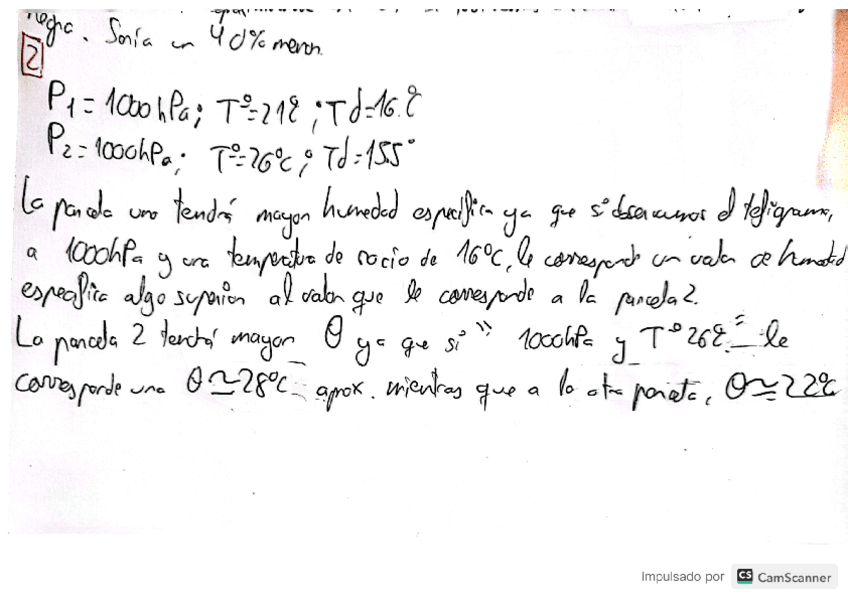 negra. Sería un 40% menor.
2
P1 = 1000 hPa; Tº=21º; Td=16ºC
P2 = 1000hPa; Tº=26ºC; Td=15.5º
La parcela uno tendrá mayor humedad específica ya que si observamos el tefigrama,
a 1000hPa y una temperatura de rocío de 16ºC, le corresponde un valor de humedad
específica algo superior al valor que le corresponde a la parcela 2.
La parcela 2 tendrá mayor θ ya que si " 1000hPa y Tº26º = le
corresponde una θ≃28ºC aprox. mientras que a la otra parcela, θ≃22ºC
Impulsado por CS CamScanner